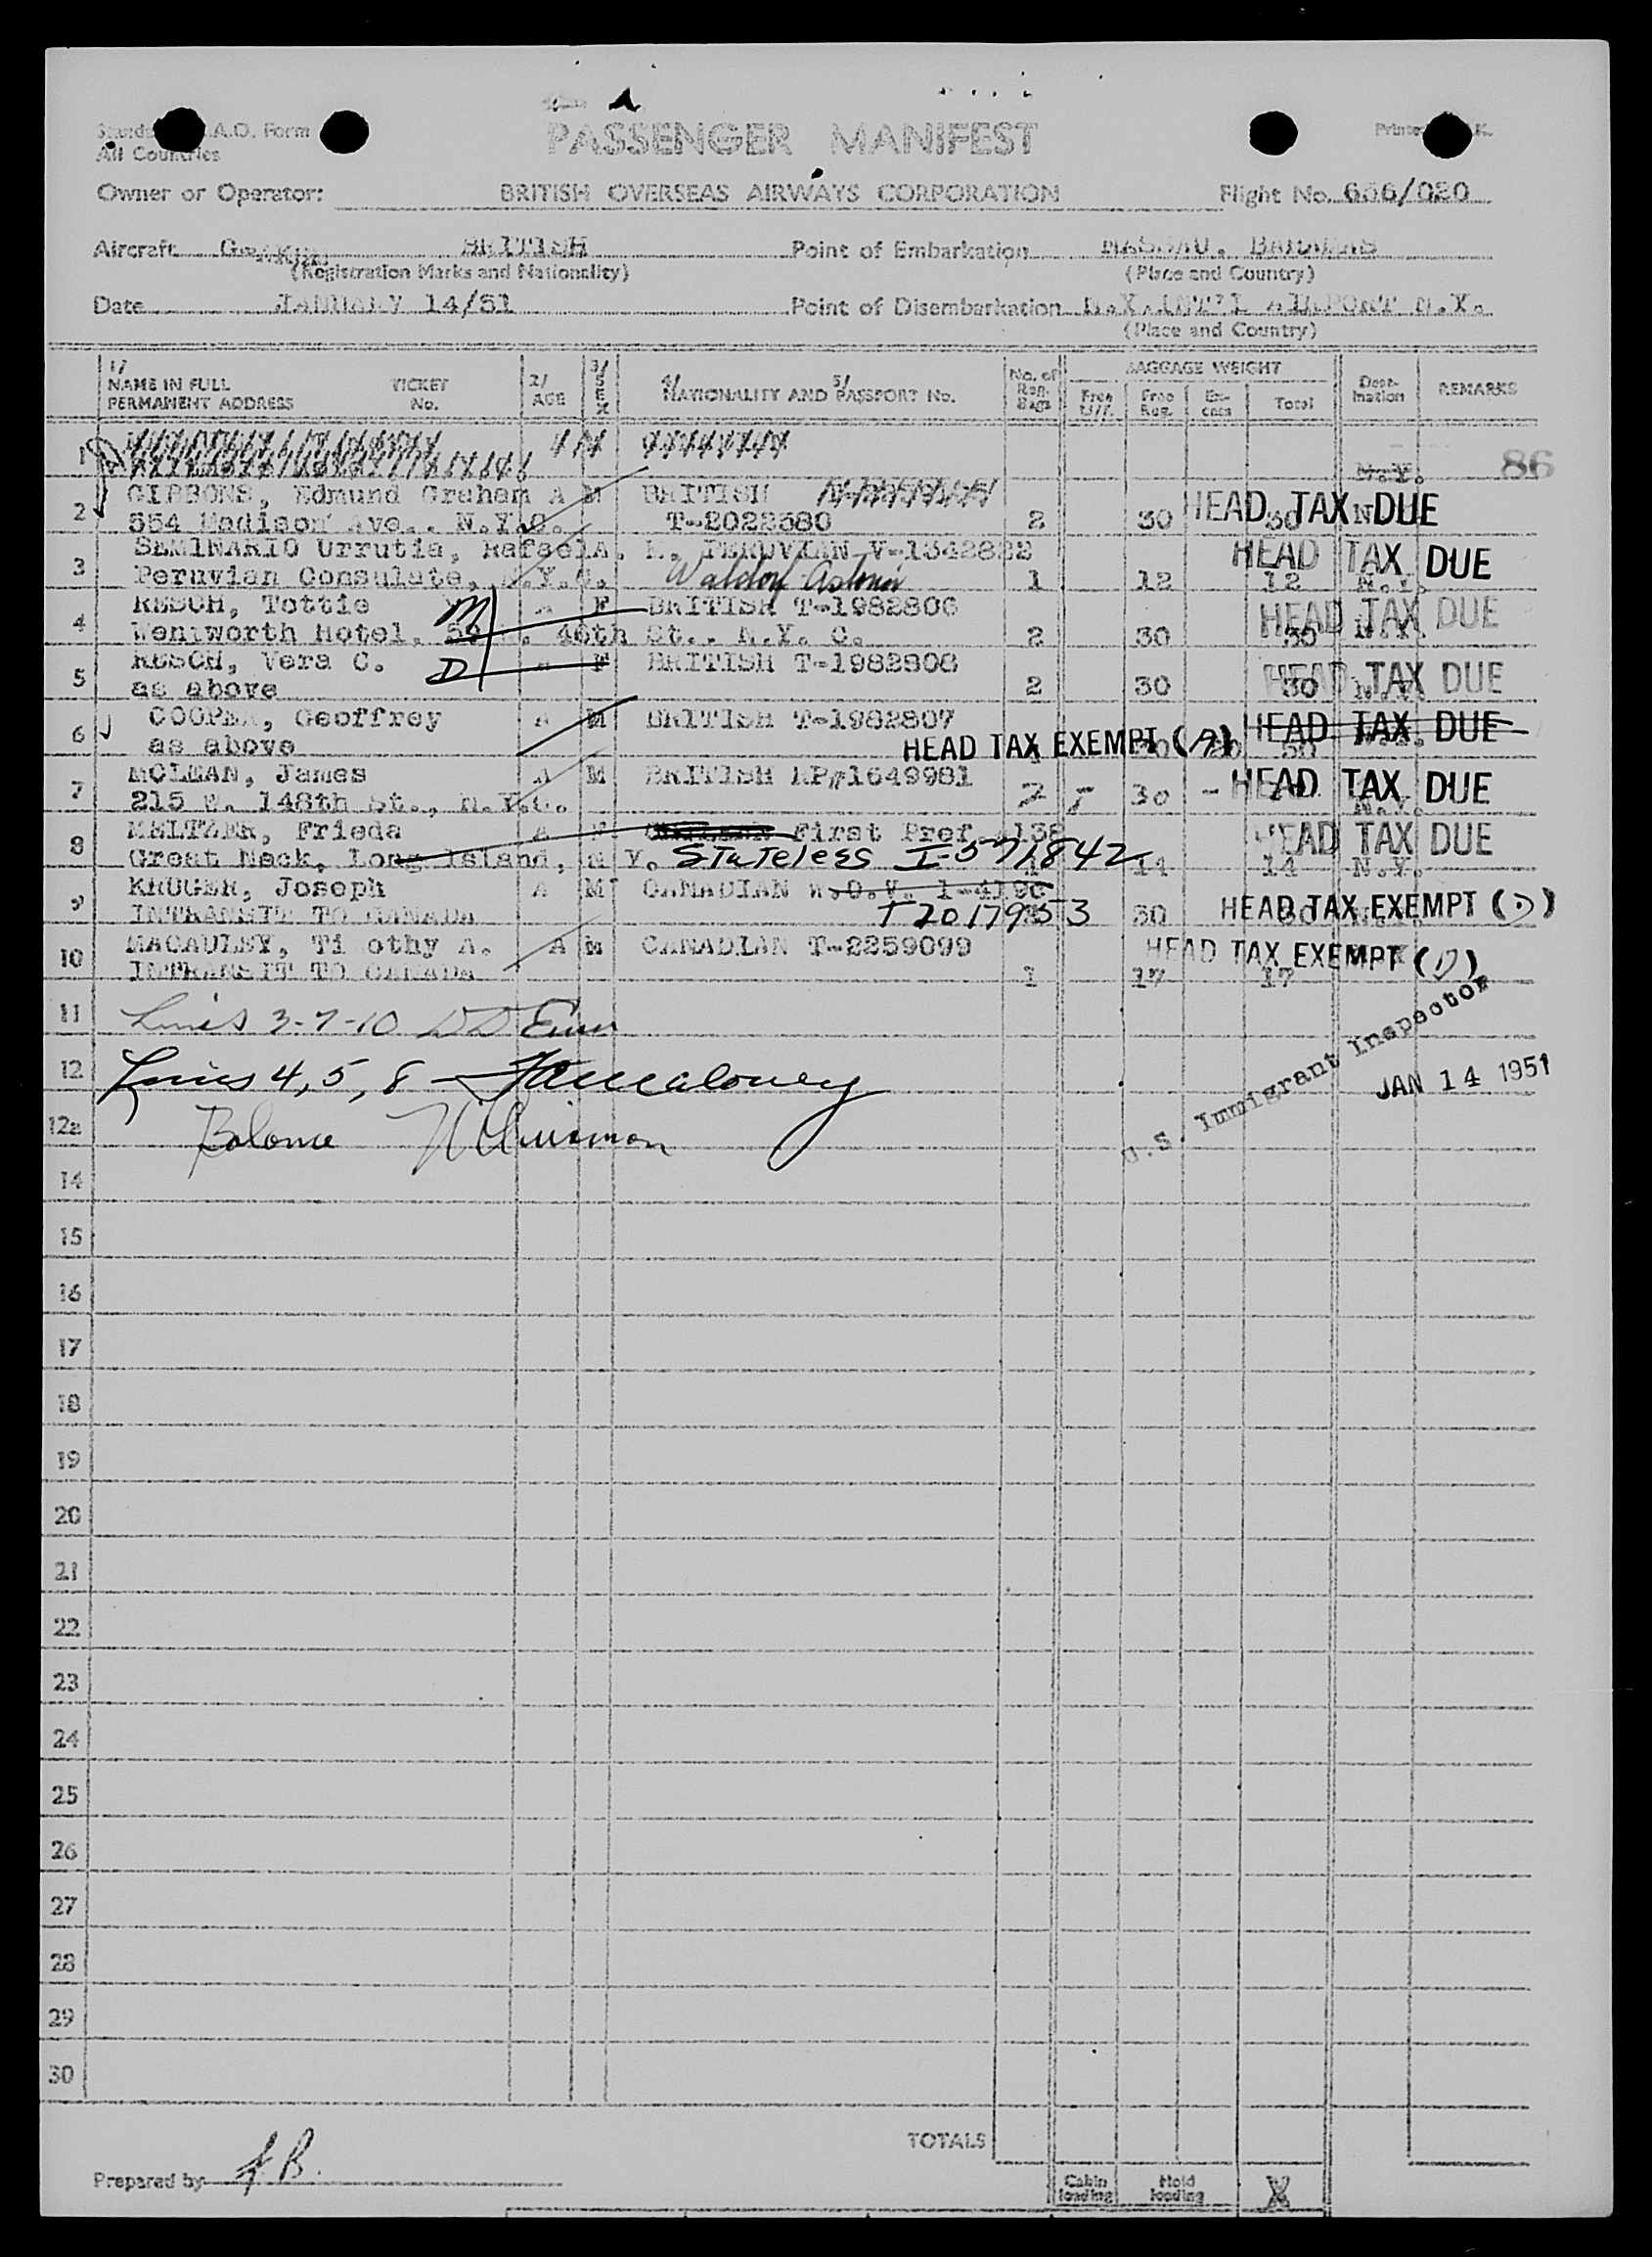 A.O. Form
All Countries
PASSENGER MANIFEST
Owner or Operator: BRITISH OVERSEAS AIRWAYS CORPORATION Flight No. 636/020
Aircraft BRITISH Point of Embarkation NASSAU, BAHAMAS
(Registration Marks and Nationality) (Place and Country)
Date JANUARY 14/51 Point of Disembarkation N.Y.INT'L AIRPORT N.Y.
(Place and Country)
1/ NAME IN FULL PERMANENT ADDRESS TICKET No. 2/ AGE 3/ SEX 4/ NATIONALITY AND 5/ PASSPORT No. No. of Reg. Bags BAGGAGE WEIGHT Free Reg. Ex-cess Total Dest-ination REMARKS
1 N.Y. 86
2 GIBBONS, Edmund Graham A M BRITISH
554 Madison Ave., N.Y.C. T-2022580 2 30 30 N.Y. HEAD TAX DUE
3 SEMINARIO Urrutia, Rafael A. M. PERUVIAN V-1342822 HEAD TAX DUE
Peruvian Consulate, N.Y.C. Waldorf Astoria 1 12 12 N.Y.
4 RESCH, Tottie M A F BRITISH T-1982806 HEAD TAX DUE
Wentworth Hotel, 59 W. 46th St., N.Y. C. 2 30 30 N.Y.
5 RESCH, Vera C. D A F BRITISH T-1982808 HEAD TAX DUE
as above 2 30 30 N.Y.
6 COOPER, Geoffrey A M BRITISH T-1982807 HEAD TAX DUE
as above HEAD TAX EXEMPT 30
7 MCLEAN, James A M BRITISH RP#1649981 HEAD TAX DUE
215 W. 148th St., N.Y.C. 2 30 - N.Y.
8 MELTZER, Frieda A F First Pref. 138 HEAD TAX DUE
Great Neck, Long Island, N.Y. Stateless I-571842 14 14 N.Y.
9 KRUGER, Joseph A M CANADIAN W.O.V. 1-4196
INTRANSIT TO CANADA T2017953 30 30 HEAD TAX EXEMPT (D)
10 MACAULEY, Ti othy A. A M CANADIAN T-2259099 HEAD TAX EXEMPT (D)
INTRANSIT TO CANADA 1 17 17
11 Lines 3-7-10
12 Lines 4, 5, 8 -
U.S. Immigrant Inspector
JAN 14 1951
12a Balance
14
15
16
17
18
19
20
21
22
23
24
25
26
27
28
29
30
TOTALS
Prepared by
Cabin loading Hold loading X